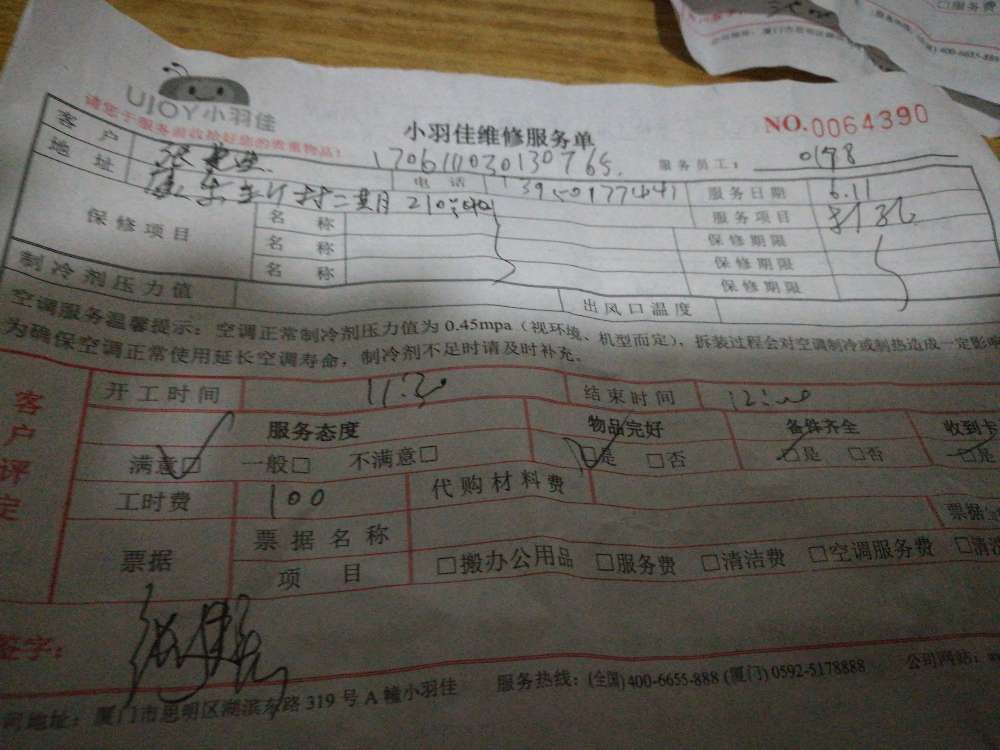 服务费
公司地址：厦门市思明区
400-6655-889
UJOY小羽佳
请您于服务前收拾好您的贵重物品！
小羽佳维修服务单
NO.0064390
170611030130765
服务员工：0198
客户
电话
服务日期 6.11
地址
二期210
服务项目 打孔
保修项目
名称 保修期限
名称 保修期限
名称 保修期限
制冷剂压力值 出风口温度
空调服务温馨提示：空调正常制冷剂压力值为 0.45mpa（视环境、机型而定），拆装过程会对空调制冷或制热造成一定影响
为确保空调正常使用延长空调寿命，制冷剂不足时请及时补充。
客户评定
开工时间 11:30 结束时间 12:00
服务态度 物品完好 备件齐全 收到卡
满意□ 一般□ 不满意□ □是 □否 □是 □否 □是
工时费 100 代购材料费
票据 票据名称 票据
项目 □搬办公用品 □服务费 □清洁费 □空调服务费 □清洗
签字：
司地址：厦门市思明区湖滨东路 319 号 A 幢小羽佳 服务热线：(全国) 400-6655-888 (厦门) 0592-5178888 公司网站：